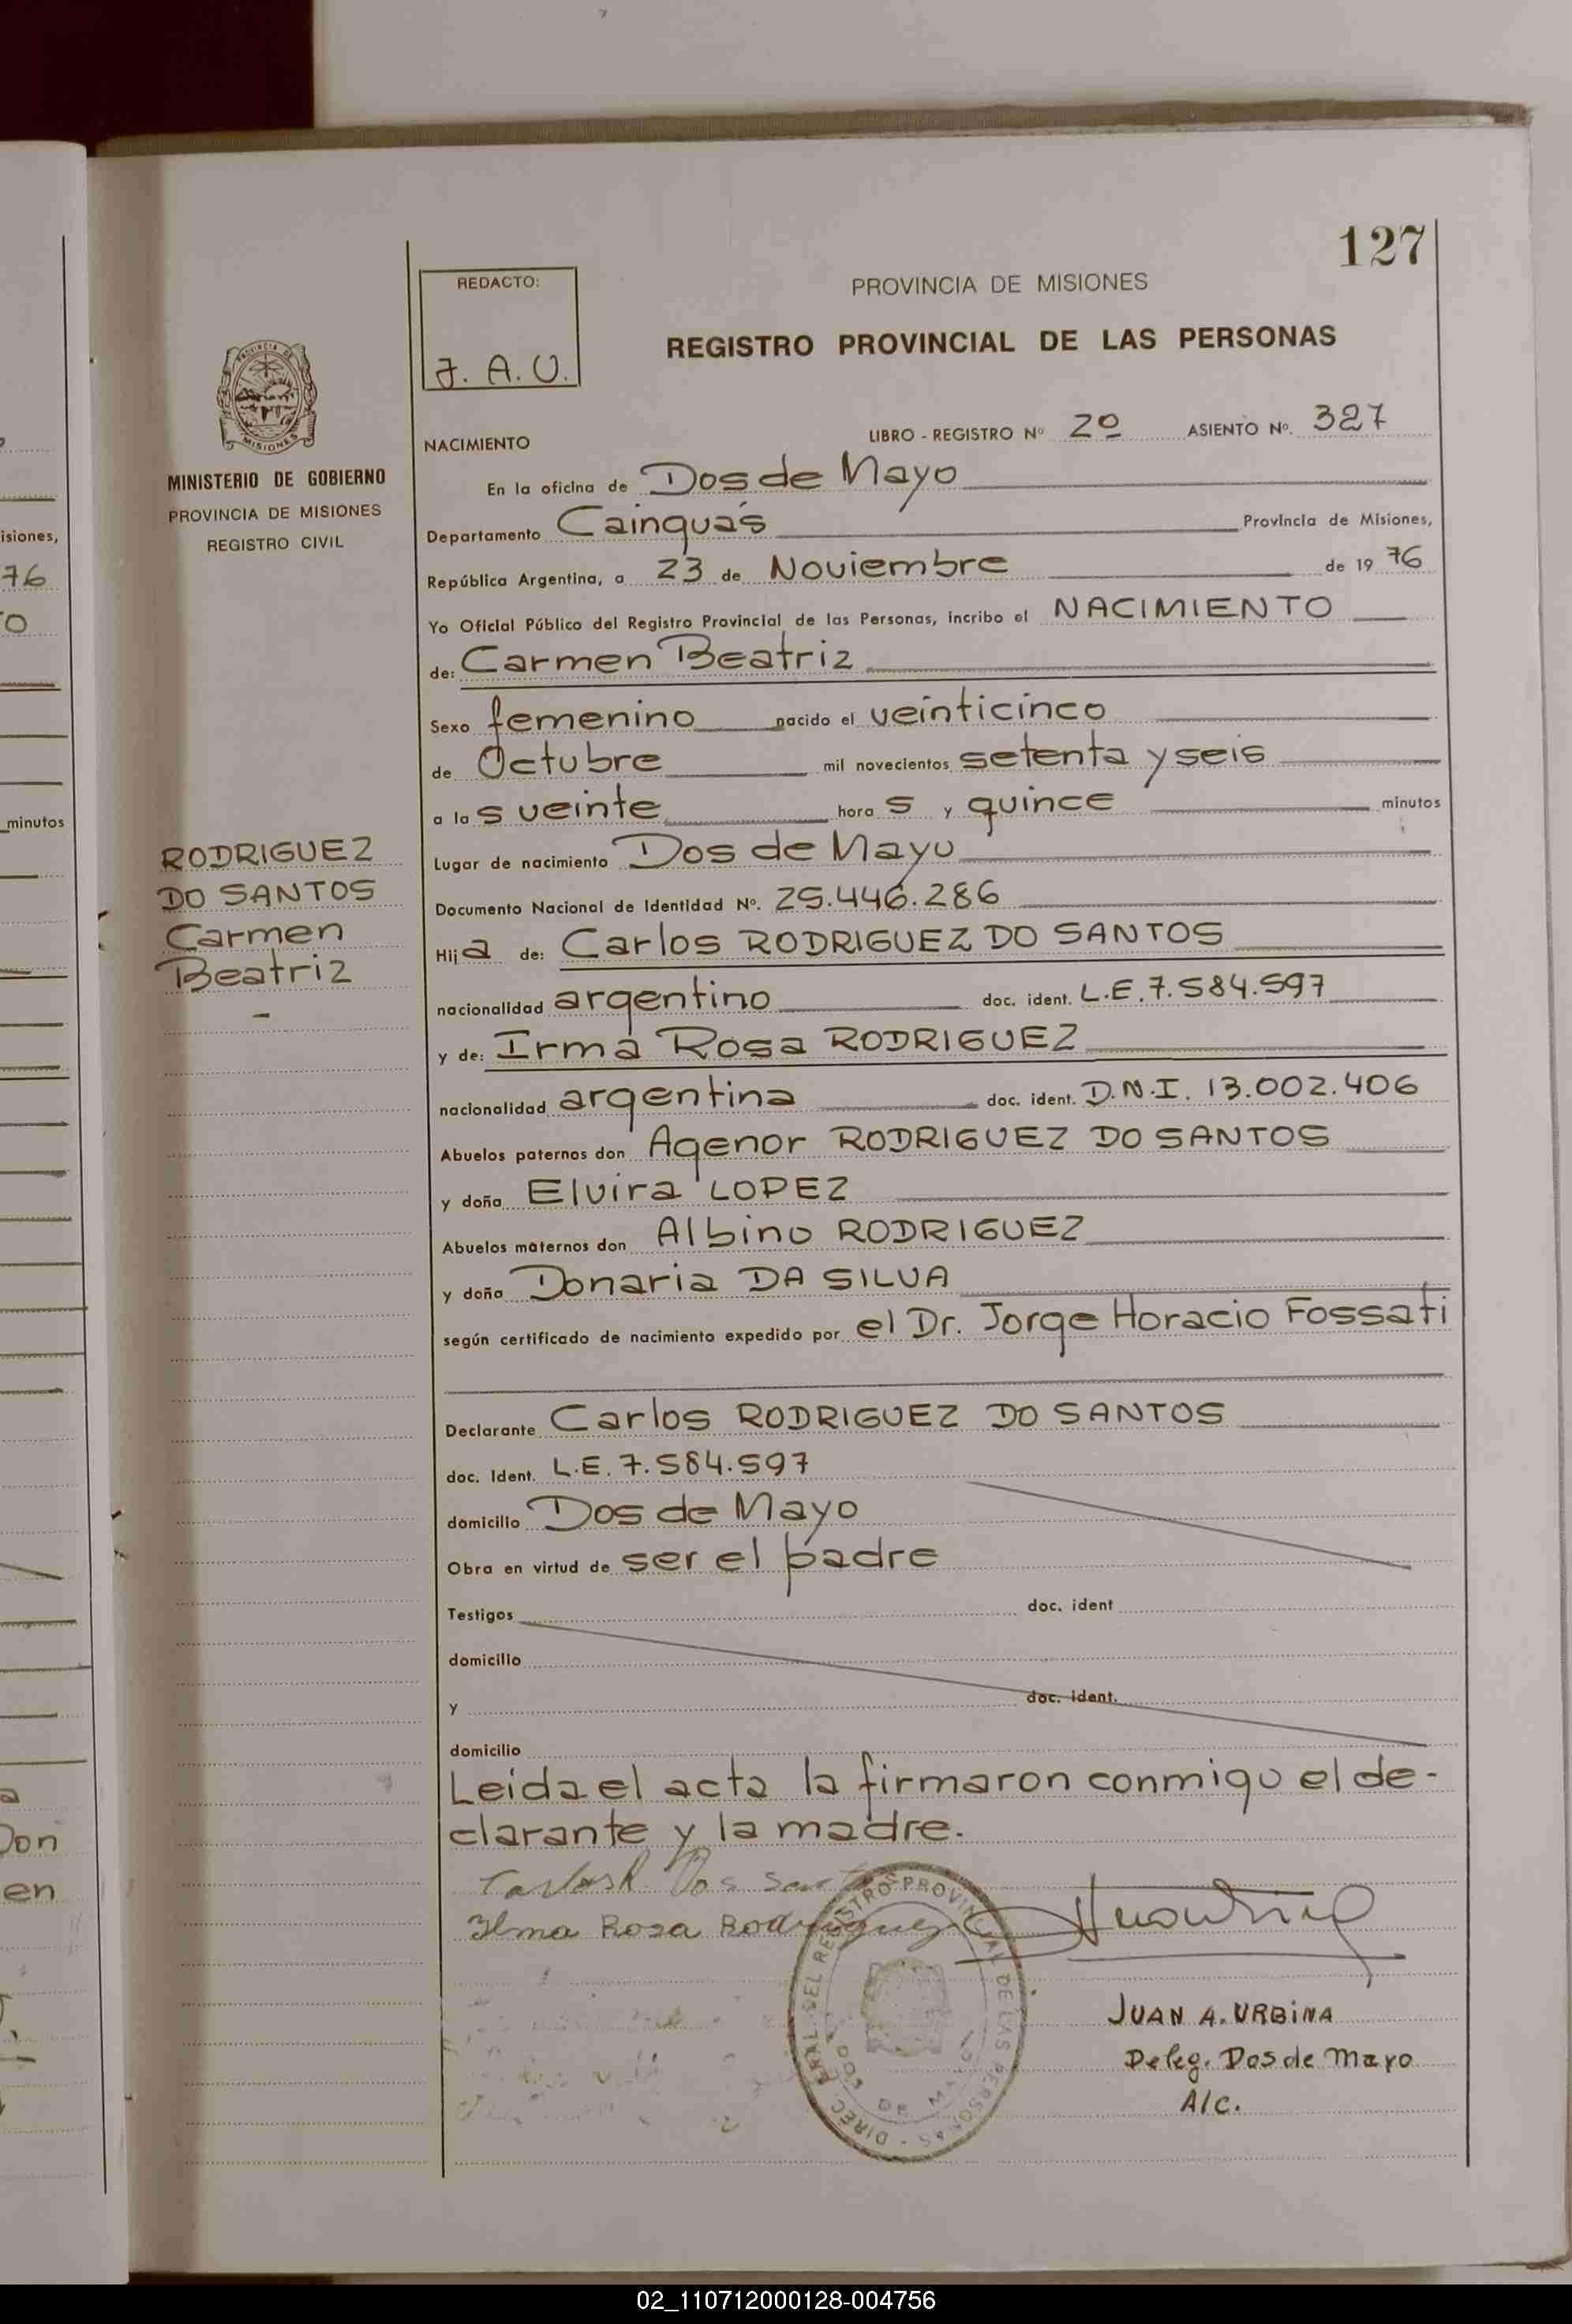 127
REDACTO:
J. A. U.
PROVINCIA DE MISIONES
REGISTRO PROVINCIAL DE LAS PERSONAS
PROVINCIA DE
MISIONES
MINISTERIO DE GOBIERNO
PROVINCIA DE MISIONES
REGISTRO CIVIL
RODRIGUEZ
DO SANTOS
Carmen
Beatriz
-
NACIMIENTO LIBRO - REGISTRO Nº 2º ASIENTO Nº. 327
En la oficina de Dos de Mayo
Departamento Cainguás Provincia de Misiones,
República Argentina, a 23 de Noviembre de 19 76
Yo Oficial Público del Registro Provincial de las Personas, incribo el NACIMIENTO
de: Carmen Beatriz
Sexo femenino nacido el veinticinco
de Octubre mil novecientos setenta y seis
a la s veinte hora s y quince minutos
Lugar de nacimiento Dos de Mayo
Documento Nacional de Identidad Nº. 25.446.286
Hij a de: Carlos RODRIGUEZ DO SANTOS
nacionalidad argentino doc. ident. L.E. 7.584.597
y de: Irma Rosa RODRIGUEZ
nacionalidad argentina doc. ident. D.N.I. 13.002.406
Abuelos paternos don Agenor RODRIGUEZ DO SANTOS
y doña Elvira LOPEZ
Abuelos maternos don Albino RODRIGUEZ
y doña Donaria DA SILVA
según certificado de nacimiento expedido por el Dr. Jorge Horacio Fossati
Declarante Carlos RODRIGUEZ DO SANTOS
doc. Ident. L.E. 7.584.597
domicilio Dos de Mayo
Obra en virtud de ser el padre
Testigos doc. ident
domicilio
y doc. ident.
domicilio
Leida el acta la firmaron conmigo el de-
clarante y la madre.
Carlos R. Dos Santos
Ilma Rosa Rodriguez
DIREC. GRAL. DEL REGISTRO PROVINCIAL DE LAS PERSONAS -
DOS DE MAYO
JUAN A. URBINA
Deleg. Dos de Mayo
A/C.
isiones,
76
minutos
Don
en
02_110712000128-004756